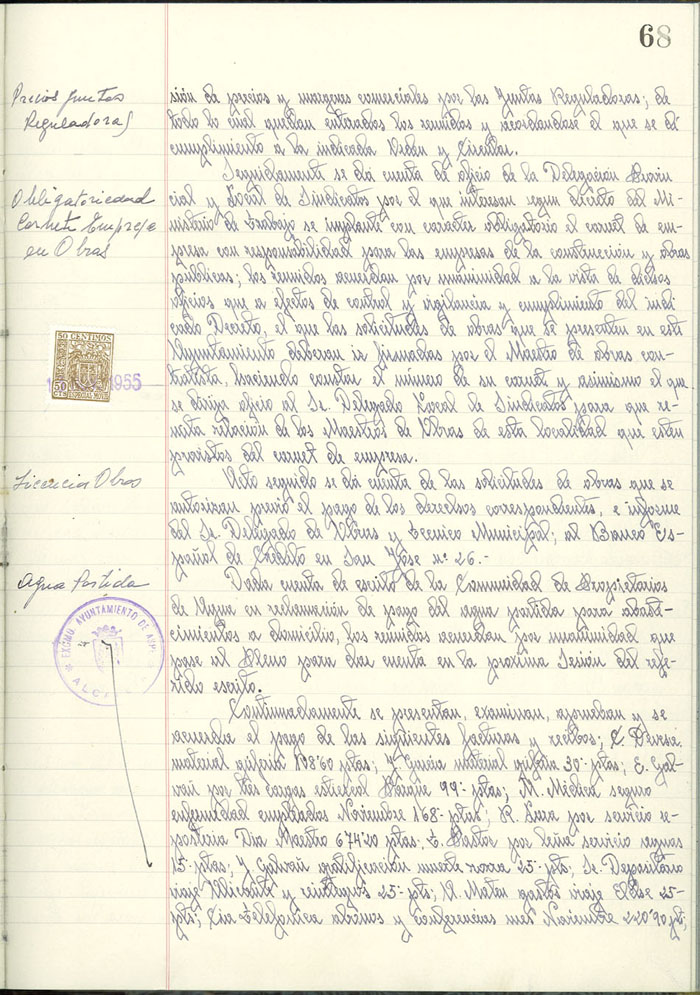 68
Precios Juntas
Reguladoras
sión de precios y margenes comerciales por las Juntas Reguladoras; de
todo lo cual quedan entrados los reunidos y acordandose el que se dé
cumplimiento a la indicada Orden y Circular.
Obligatoriedad
Carnet Empresa
en Obras
Seguidamente se dá cuenta de oficio de la Delegación Provin
cial y Local de Sindicatos por el que interesan segun decreto del Mi-
nisterio de Trabajo se implante con caracter obligatorio el carnet de em-
presa con responsabilidad para las empresas de la construcción y obras
publicas; los reunidos acuerdan por unanimidad a la vista de dichos
oficios que a efectos de control y vigilancia y cumplimiento del indi
cado Decreto, el que las solicitudes de obras que se presenten en este
Ayuntamiento deberan ir firmadas por el Maestro de obras con-
tratista, haciendo constar el número de su carnet y asimismo el que
se dirija oficio al Sr. Delegado Local de Sindicatos para que re-
mita relación de los Maestros de Obras de esta localidad que esten
provistos del carnet de empresa.
50 CENTIMOS
50
CTS
ESPECIAL MOVIL
1955
Licencia Obras
Acto seguido se dá cuenta de las solicitudes de obras que se
autorizan previo el pago de los derechos correspondientes, e informe
del Sr. Delegado de Obras y Tecnico Municipal; al Banco Es-
pañol de Crédito en San José nº 26.-
Agua Partida
Dada cuenta de escrito de la Comunidad de Propietarios
de Agua en reclamación de pago del agua partida para abaste-
cimientos a domicilio, los reunidos acuerdan por unanimidad que
pase al Pleno para dar cuenta en la proxima Sesión del refe-
rido escrito.
EXCMO. AYUNTAMIENTO DE
Continuadamente se presentan, examinan, aprueban y se
acuerda el pago de las siguientes facturas y recibos;
material 198'60 ptas; García material 30- ptas; E. Gal-
vañ por tres cargas estiercol Parque 99- ptas; M. Médica seguro
enfermedad empleados Noviembre 168- ptas; R. por servicio re-
posteria Dia Maestro 674'20 ptas; Pastor por leña servicio aguas
15- ptas; J. Galvañ gratificación 25- pts; Sr. Depositario
viaje Alicante y 25- pts; A. Mateu gastos viaje Elche 25-
pts; Cia Telefonica abonos y conferencias mes Noviembre 220'90 pts;